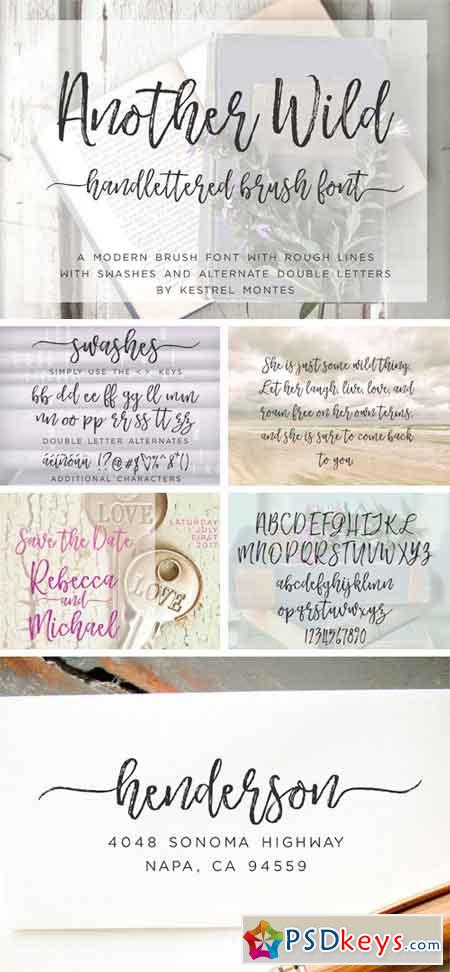 Another Wild
handlettered brush font
A MODERN BRUSH FONT WITH ROUGH LINES
WITH SWASHES AND ALTERNATE DOUBLE LETTERS
BY KESTREL MONTES
swashes
SIMPLY USE THE < > KEYS
bb dd ee ff gg ll mm
nn oo pp rr ss tt zz
DOUBLE LETTER ALTERNATES
ADDITIONAL CHARACTERS
She is just some wild thing.
Let her laugh, live, love, and
roam free on her own terms,
and she is sure to come back
to you.
LOVE
SATURDAY
JULY
FIRST
2017
Save the Date
Rebecca
and
Michael
LOVE
ABCDEFGHIJKL
MNOPQRSTUVWXYZ
abcdefghijklmn
opqrstuvwxyz
1234567890
henderson
4048 SONOMA HIGHWAY
NAPA, CA 94559
PSDkeys.com